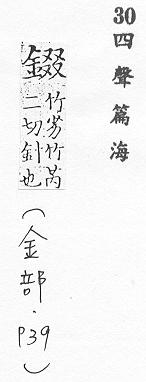 30 四聲篇海
錣
竹劣竹芮
二切針也
(金部.P39)